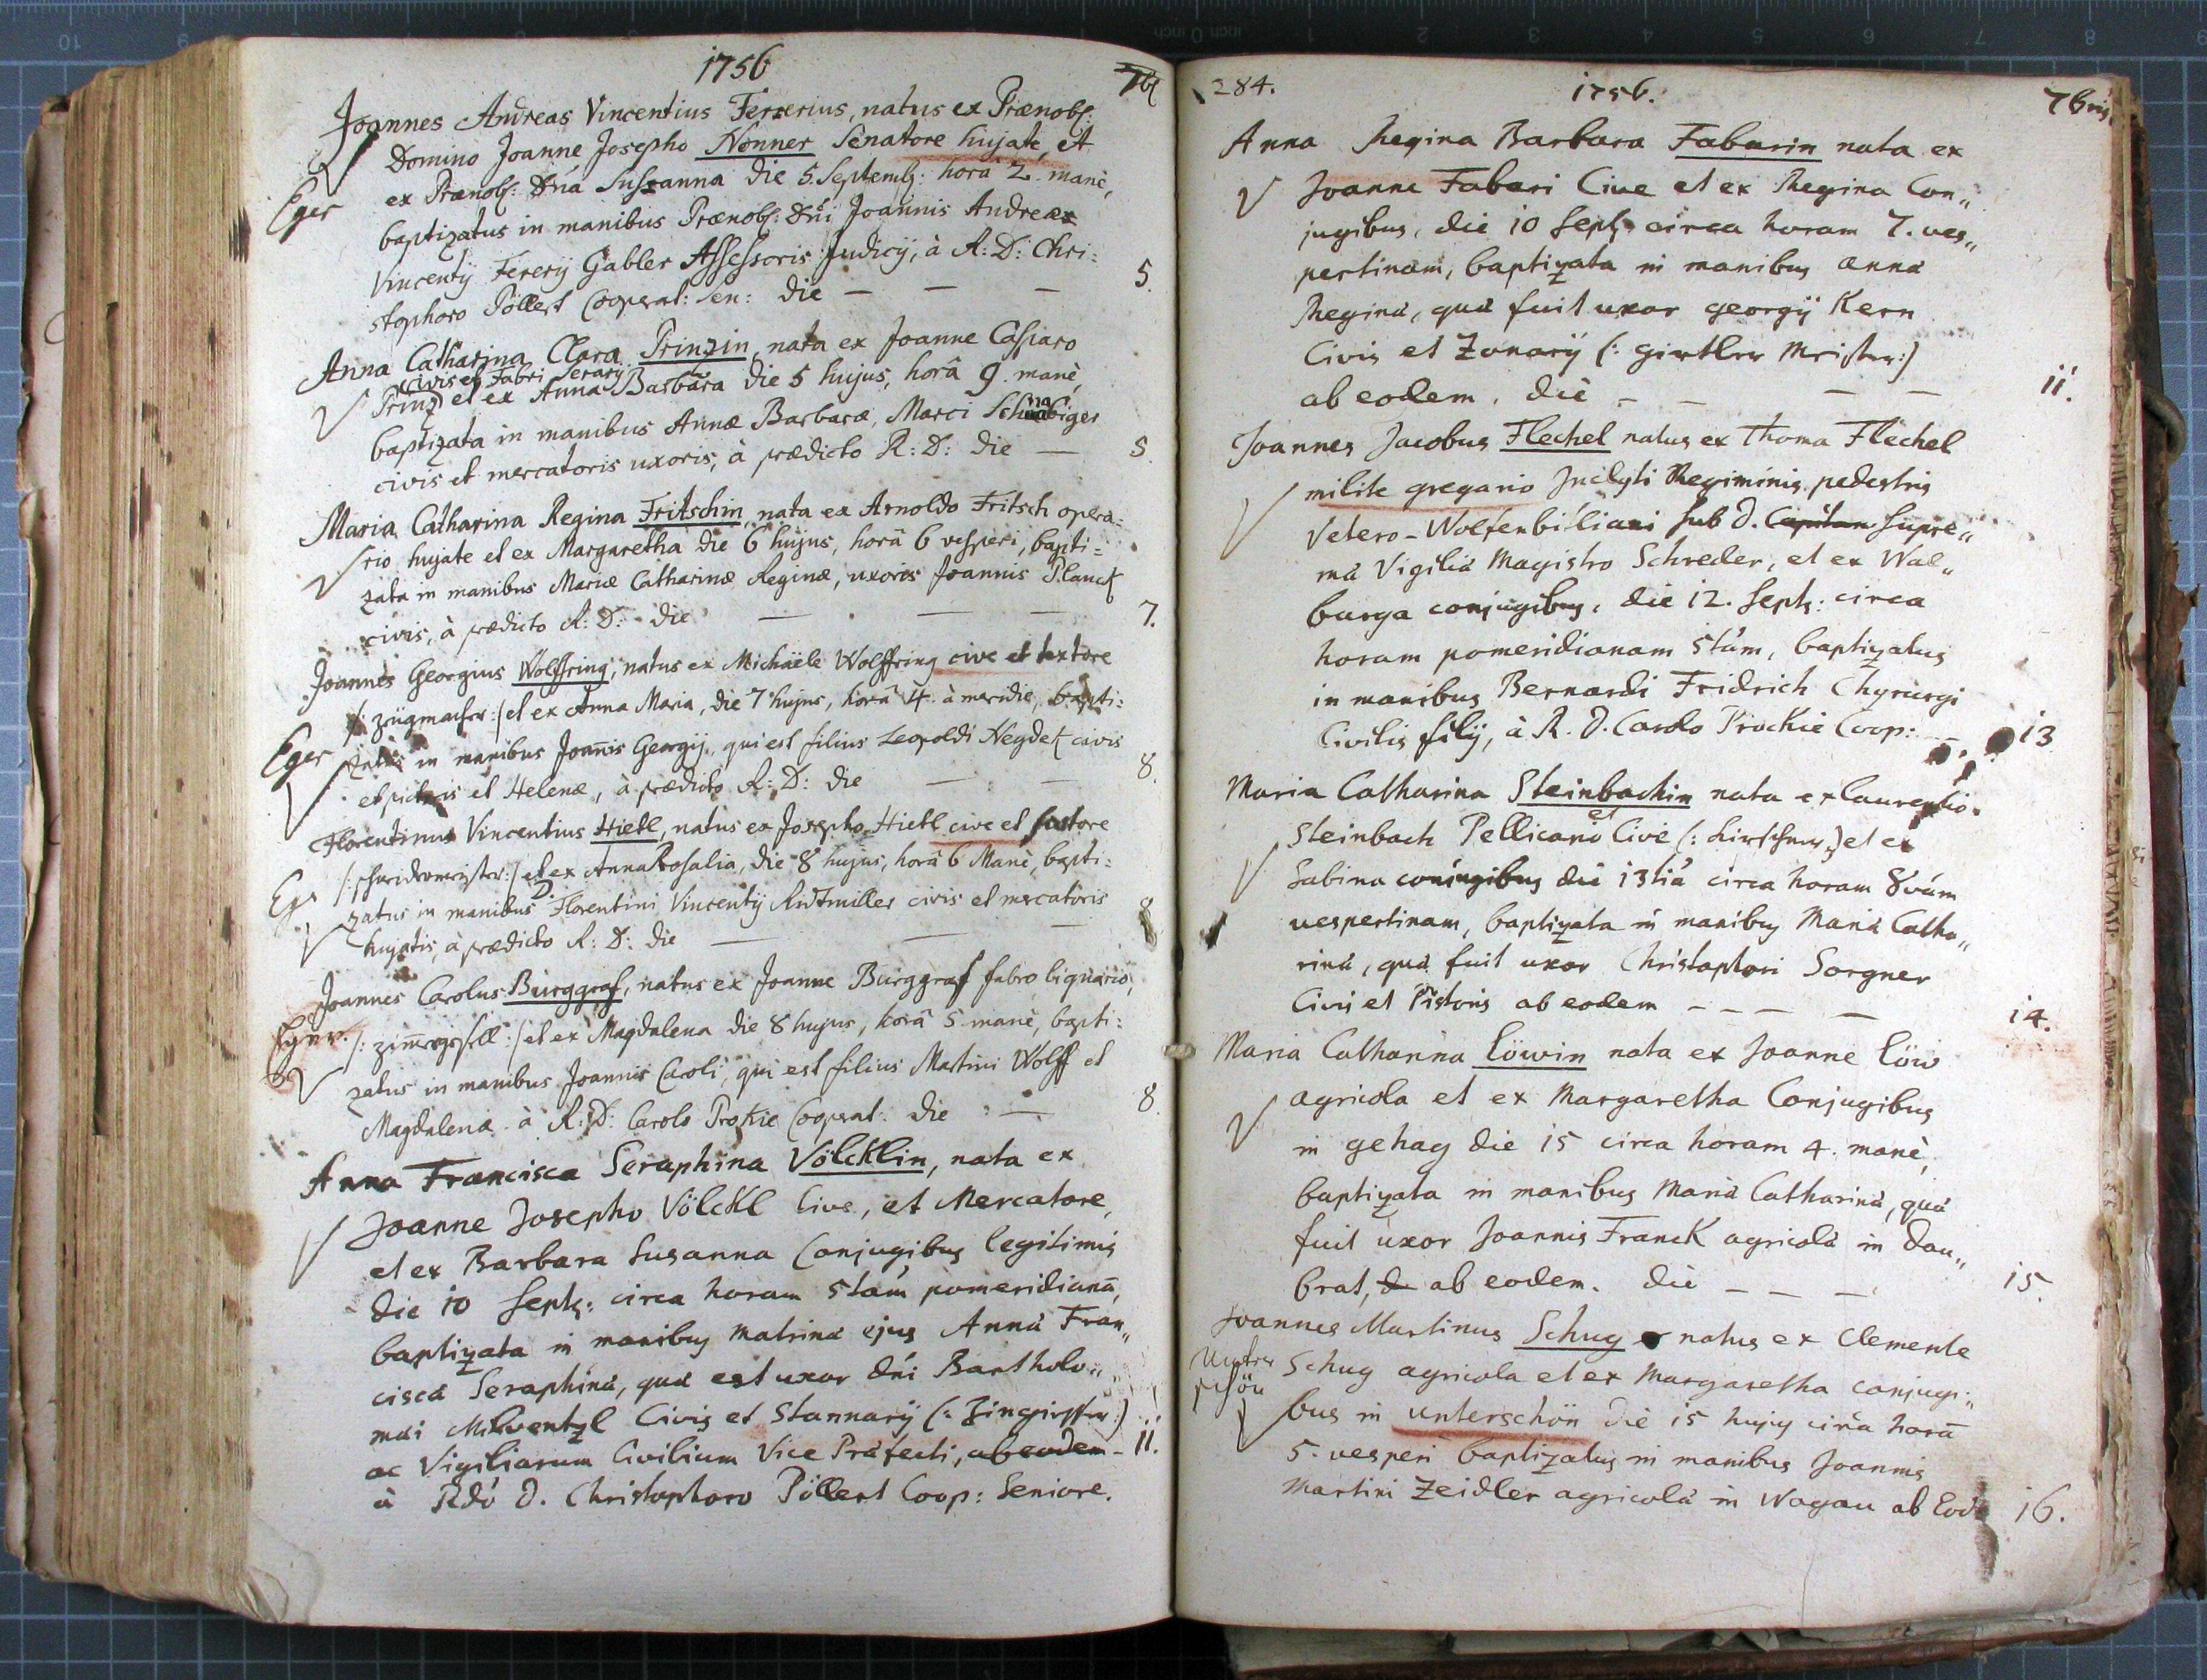 1756
Joannes Andreas Vincentius Ferrerius, natus ex Prænob:
Domino Joanne Josepho Nonner Senatore hujate, et
ex Prænob: Dna Suszanna die 5. Septemb: horâ 2. manè,
Eger
baptizatus in manibus Prænob: Dni Joannis Andreæ
Vincentij Fererij Gabler Assessoris Judicij, à R: D: Chri:
stophoro Pöllert Cooperat: Sen: die — — — 5.
Anna Catharina Clara Prinzin, nata ex Joanne Casparo
civis et Fabri Serarij
Prinz et ex Anna Barbara die 5 hujus, horâ 9. manè,
baptizata in manibus Annæ Barbaræ, Marci
civis et mercatoris uxoris, à prædicto R: D: die — 5.
Maria Catharina Regina Fritschin, nata ex Arnoldo Fritsch opera:
rio hujate et ex Margaretha die 6 hujus, horâ 6 vesperi, bapti:
zata in manibus Mariæ Catharinæ Reginæ, uxoris Joannis Planck
civis, à prædicto R: D: die — — — 7.
Joannes Georgius Wolffring, natus ex Michaële Wolffring cive et textore
/: zeügmacher :/ et ex Anna Maria, die 7 hujus, horâ 4. à meridie, bapti:
Eger
zatus in manibus Joannis Georgij, qui est filius Leopoldi Heydek civis
et pictoris et Helenæ, à prædicto R: D: die — — 8.
Florentinus Vincentius Hietl, natus ex Josepho Hietl cive et sartore
/: schneidermeister :/ et ex Anna Rosalia, die 8 hujus, horâ 6 Manè, bapti:
Eger
zatus in manibus D. Florentini Vincentij civis et mercatoris
hujatis, à prædicto R: D: die — — — 8
Joannes Carolus Burggraf, natus ex Joanne Burggraf fabro lignario,
/: zimergsell :/ et ex Magdalena die 8 hujus, horâ 5 manè, bapti:
zatus in manibus Joannis Caroli, qui est filius Martini Wolff et
Magdalenæ à R: D: Carolo Prokie Cooperat: die — 8.
Anna Francisca Seraphina Völcklin, nata ex
Joanne Josepho Völckl Cive, et Mercatore,
et ex Barbara Susanna Conjugibus legitimis
die 10 Septb: circa horam 5tam pomeridianā,
baptizata in manibus matrinæ ejus Anna Fran„
cisca Seraphina, quæ est uxor dni Bartholo„
mæi Civis et Stannarij (: Zingiesser :)
ac Vigiliarum Civilium Vice Præfecti, ab eodem — 11.
à Rdo D. Christophoro Pöllert Coop: Seniore.
284.
1756.
7bris
Anna Regina Barbara Fabarin nata ex
Joanne Fabari Cive et ex Regina Con„
jugibus, die 10 Septb: circa horam 7. ves„
pertinam, baptizata in manibus Anna
Regina, quæ fuit uxor georgij Kern
Civis et Zonarij (: girtler Meister :)
ab eodem, die — — — — 11.
Joannes Jacobus Flechel natus ex Thoma Flechel
milite gregario Inclyti Regiminis pedestris
Vetero-Wolfenbiliani sub D. Capitan Supre„
ma Vigilia Magistro Schreder, et ex Wal„
burga conjugibus, die 12. Septb: circa
horam pomeridianam 5tam, baptizatus
in manibus Bernardi Fridrich Chyrurgi
Civilis filij, à R. D. Carolo Prockie Coop: — 13
Maria Catharina Steinbachin nata ex Laurentio
Steinbach Pellicano et Cive (: kirschner :) et ex
Sabina conjugibus die 13tia circa horam 8vam
vespertinam, baptizata in manibus Maria Catha„
rina, quæ fuit uxor Christophori Sorgner
Civis et Pistoris ab eodem — — — — 14.
Maria Catharina Löwin nata ex Joanne Löw
agricola et ex Margaretha Conjugibus
in gehag die 15 circa horam 4. manè,
baptizata in manibus Maria Catharina, quæ
fuit uxor Joannis Franck agricola in Dau„
brat, d ab eodem. die — — — 15.
Joannes Martinus Schug natus ex Clemente
Unter
schön
Schug agricola et ex Margaretha conjugi„
bus in unterschön die 15 hujus circa horā
5. vesperi baptizatus in manibus Joannis
Martini Zeidler agricola in Wogau ab Eod 16.